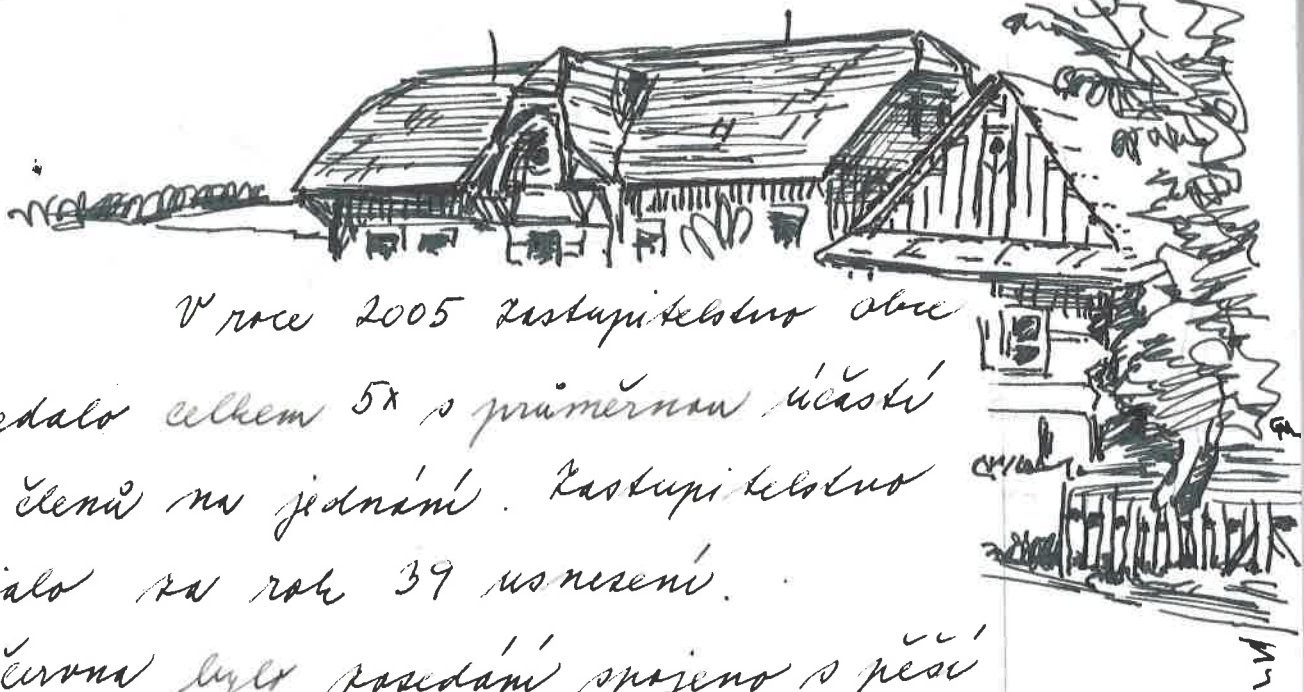 V roce 2005 zastupitelstvo obce
edalo celkem 5x s průměrnou účastí
členů na jednání. Zastupitelstvo
alo za rok 39 usnesení.
června bylo zasedání spojeno s pěší